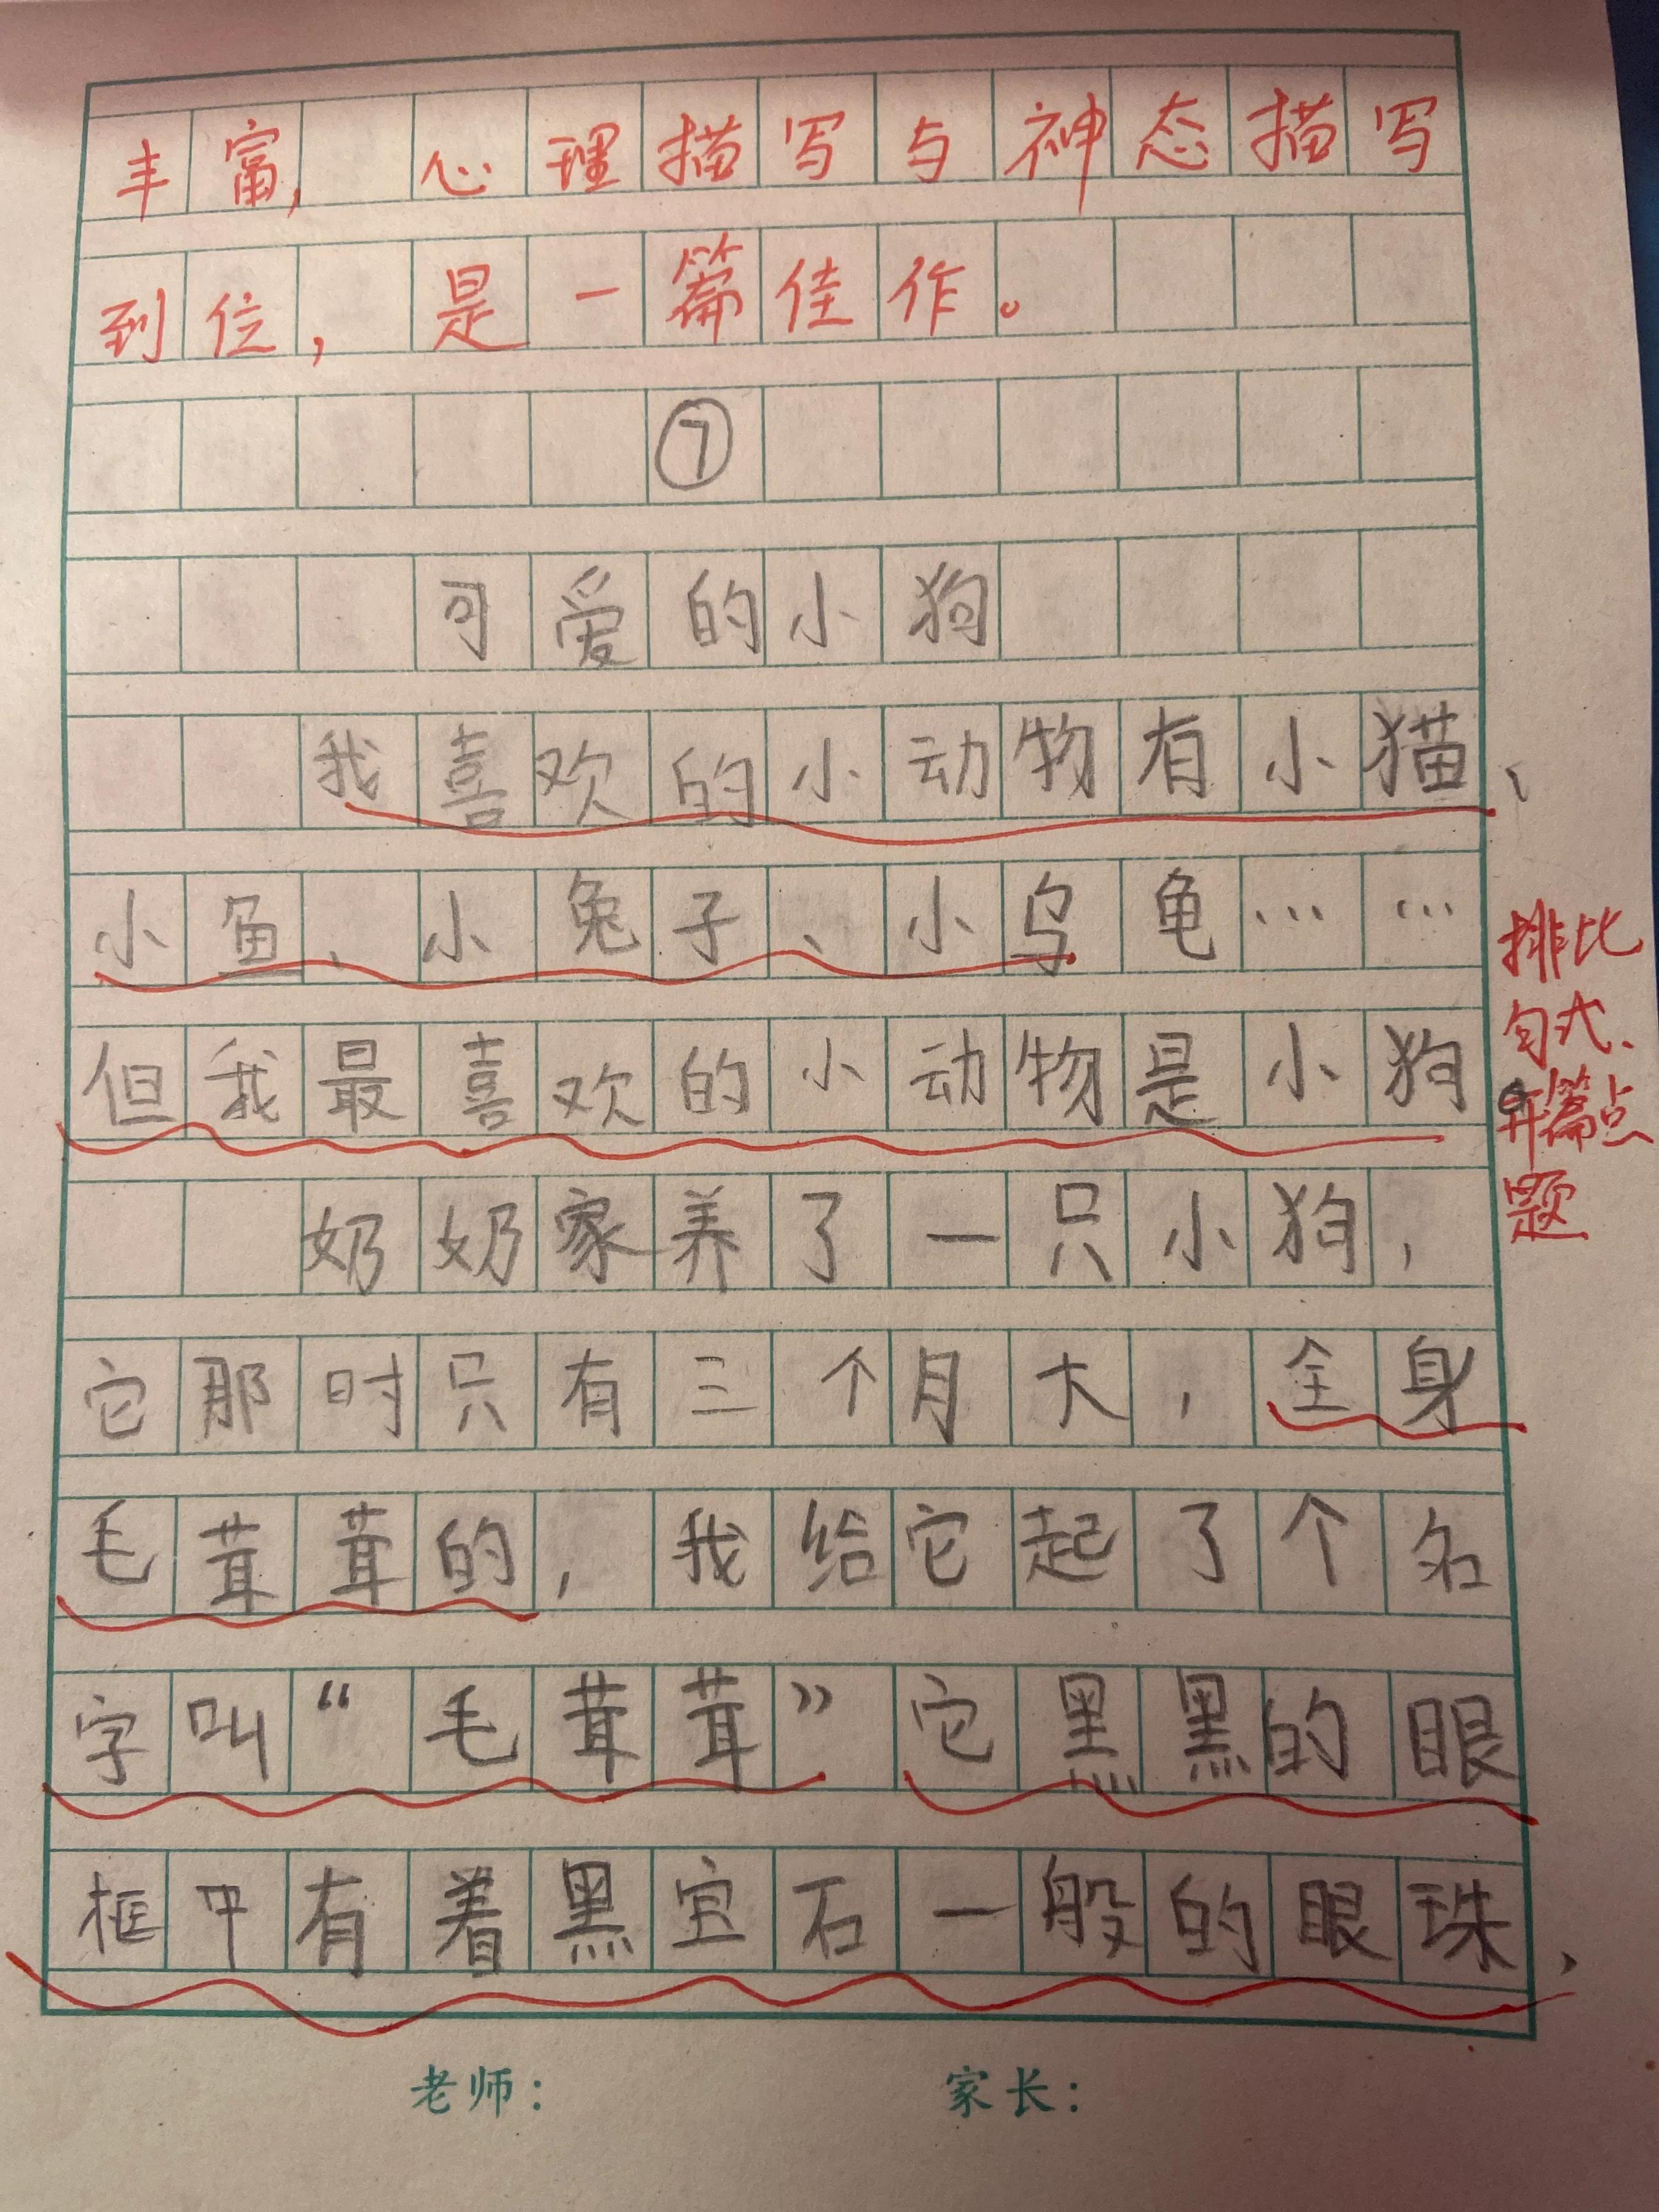 丰富，心理描写与神态描写
到位，是一篇佳作。
⑦
可爱的小狗
我喜欢的小动物有小猫、
小鱼、小兔子、小乌龟……
但我最喜欢的小动物是小狗
排比
句式、
开篇点
题
奶奶家养了一只小狗，
它那时只有三个月大，全身
毛茸茸的，我给它起了个名
字叫“毛茸茸”它黑黑的眼
框中有着黑宝石一般的眼珠，
老师：
家长：